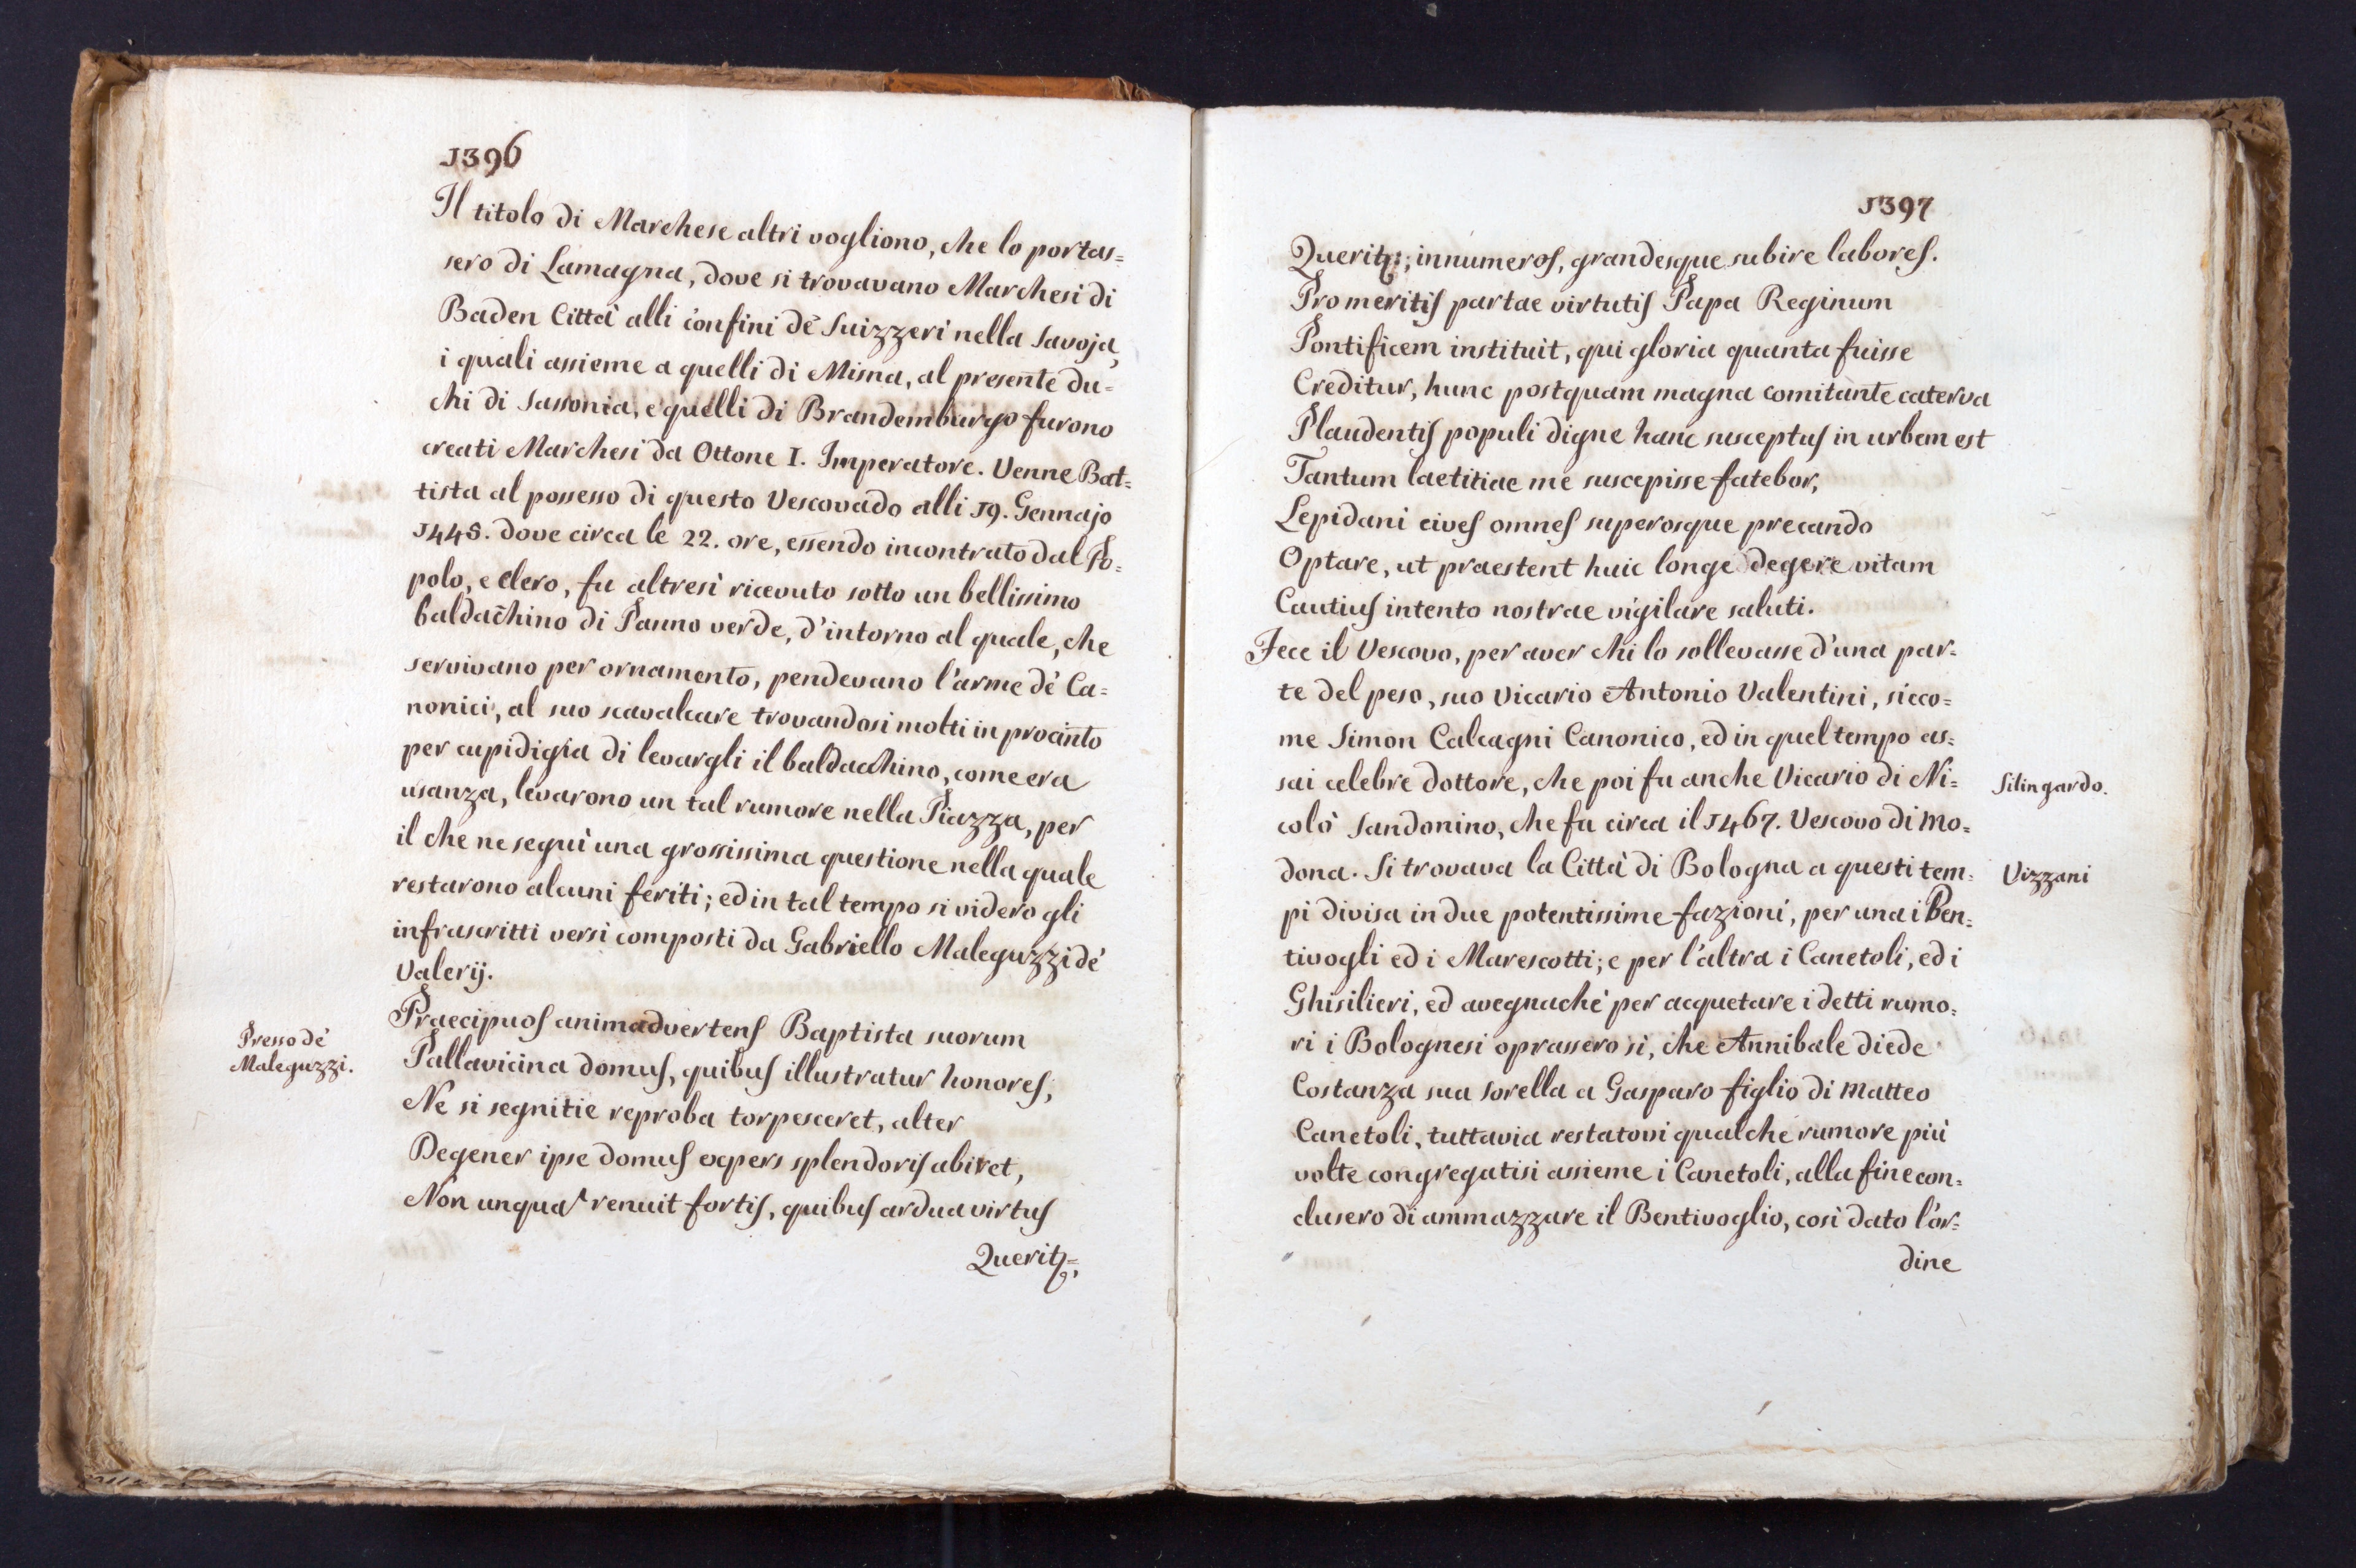 1396
Il titolo di Marchese altri vogliono, che lo portas=
sero di Lamagna, dove si trovavano Marchesi di
Baden Città alli confini dè Suizzeri nella Savoja,
i quali assieme a quelli di Misna, al presente du=
chi di Sassonia, e quelli di Brandemburgo furono
creati Marchesi da Ottone I. Imperatore. Venne Bat=
tista al possesso di questo Vescovado alli 19. Gennajo
1445. dove circa le 22. ore, essendo incontrato dal Po=
polo, e Clero, fu altresì ricevuto sotto un bellissimo
baldachino di Panno verde, d'intorno al quale, che
servivano per ornamento, pendevano l'arme dè Ca=
nonici, al suo scavalcare trovandosi molti in procinto
per cupidigia di levargli il baldacchino, come era
usanza, levarono un tal rumore nella Piazza, per
il che ne seguì una grossissima questione nella quale
restarono alcuni feriti; ed in tal tempo si videro gli
infrascritti versi composti da Gabriello Maleguzzi dè
Valerij.
Presso dè
Maleguzzi.
Praecipuos animadvertens Baptista suorum
Pallavicina domus, quibus illustratur honores,
Ne si segnitie reproba torpesceret, alter
Degener ipse domus expers splendoris abiret,
Non unqua^ renuit fortis, quibus ardua virtus
Queritz=,
1397
Queritz;, innumeros, grandesque subire labores.
Pro meritis partae virtutis Papa Reginum
Pontificem instituit, qui gloria quanta fuisse
Creditur, hunc postquam magna comitante caterva
Plaudentis populi digne hanc susceptus in urbem est
Tantum laetitiae me suscepisse fatebor,
Lepidani cives omnes superosque precando
Optare, ut praestent huic longe degere vitam
Cautius intento nostrae vigilare saluti.
Fece il Vescovo, per aver chi lo sollevasse d'una par=
te del peso, suo Vicario Antonio Valentini, sicco=
me Simon Calcagni Canonico, ed in quel tempo as=
sai celebre dottore, che poi fu anche Vicario di Ni=
Silingardo.
colò Sandonino, che fu circa il 1467. Vescovo di Mo=
dona. Si trovava la Città di Bologna a questi tem=
Vizzani
pi divisa in due potentissime fazioni, per una i Ben=
tivogli ed i Marescotti; e per l'altra i Canetoli, ed i
Ghisilieri, ed avegnachè per acquetare i detti rumo=
ri i Bolognesi oprassero sì, che Annibale diede
Costanza sua sorella a Gasparo figlio di Matteo
Canetoli, tuttavia restatovi qualche rumore più
volte congregatisi assieme i Canetoli, alla fine con=
clusero di ammazzare il Bentivoglio, così dato l'or=
dine